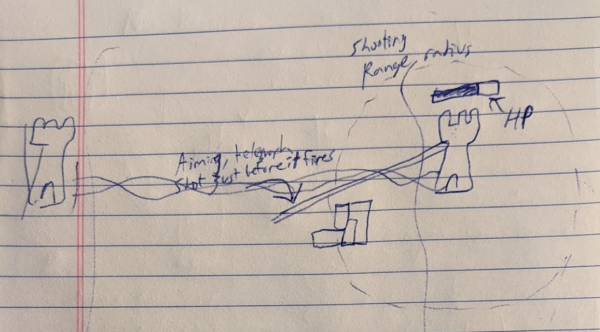 Shooting
Range radius
HP
Aiming, telegraph
shot just before it fires